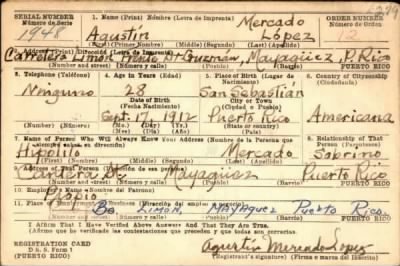 SERIAL NUMBER
Número de Serie
1948
1. Name (Print) Nombre (Letra de Imprenta)
Agustin Mercado López
(First) (Primer Nombre) (Middle) (Segundo) (Last) (Apellido)
ORDER NUMBER
Número de Orden
12
2. Address (Print) Dirección (Letra de Imprenta)
Carretera Limon Guzman, Mayagüez, P. Rico
(Number and street) (Número y calle) (Town) (Pueblo) (Barrio) (Barrio)
PUERTO RICO
3. Telephone (Teléfono)
Ninguno
4. Age in Years (Edad)
28
Date of Birth
(Fecha Nacimiento)
Sept. 17, 1912
(Mo.) (Mes) (Day) (Día) (Yr.) (Año)
5. Place of Birth (Lugar de Nacimiento)
San Sebastian
City or Town
(Ciudad o Pueblo)
Puerto Rico
(Country) (País)
6. Country of Citizenship
(Ciudadanía)
Americana
7. Name of Person Who Will Always Know Your Address (Nombre de la Persona que siempre sabrá su dirección)
Hipolito Mercado
(First) (Primer Nombre) (Middle) (Segundo) (Last) (Apellido)
8. Relationship of That Person (Parentesco)
Sobrino
9. Address of That Person (Dirección de esa persona)
St. Mayagüez Puerto Rico
(Number and street) (Número y calle) (Town) (Pueblo) (Barrio) (Barrio)
PUERTO RICO
10. Employer's Name (Nombre del Patrono)
Propio
11. Place of Employment (Dirección del empleo)
Bo. LIMON, MAYAGUEZ Puerto Rico.
(Number and street) (Número y calle) (Town) (Pueblo) (Barrio) (Barrio)
PUERTO RICO
I Affirm That I Have Verified Above Answers And That They Are True.
(Afirmo que he verificado las contestaciones que preceden y que todas son correctas.
REGISTRATION CARD
D S S. Form 1
(PUERTO RICO)
Agustin Mercado Lopez
Registrant's signature) (Firma e marca del Inscrito)